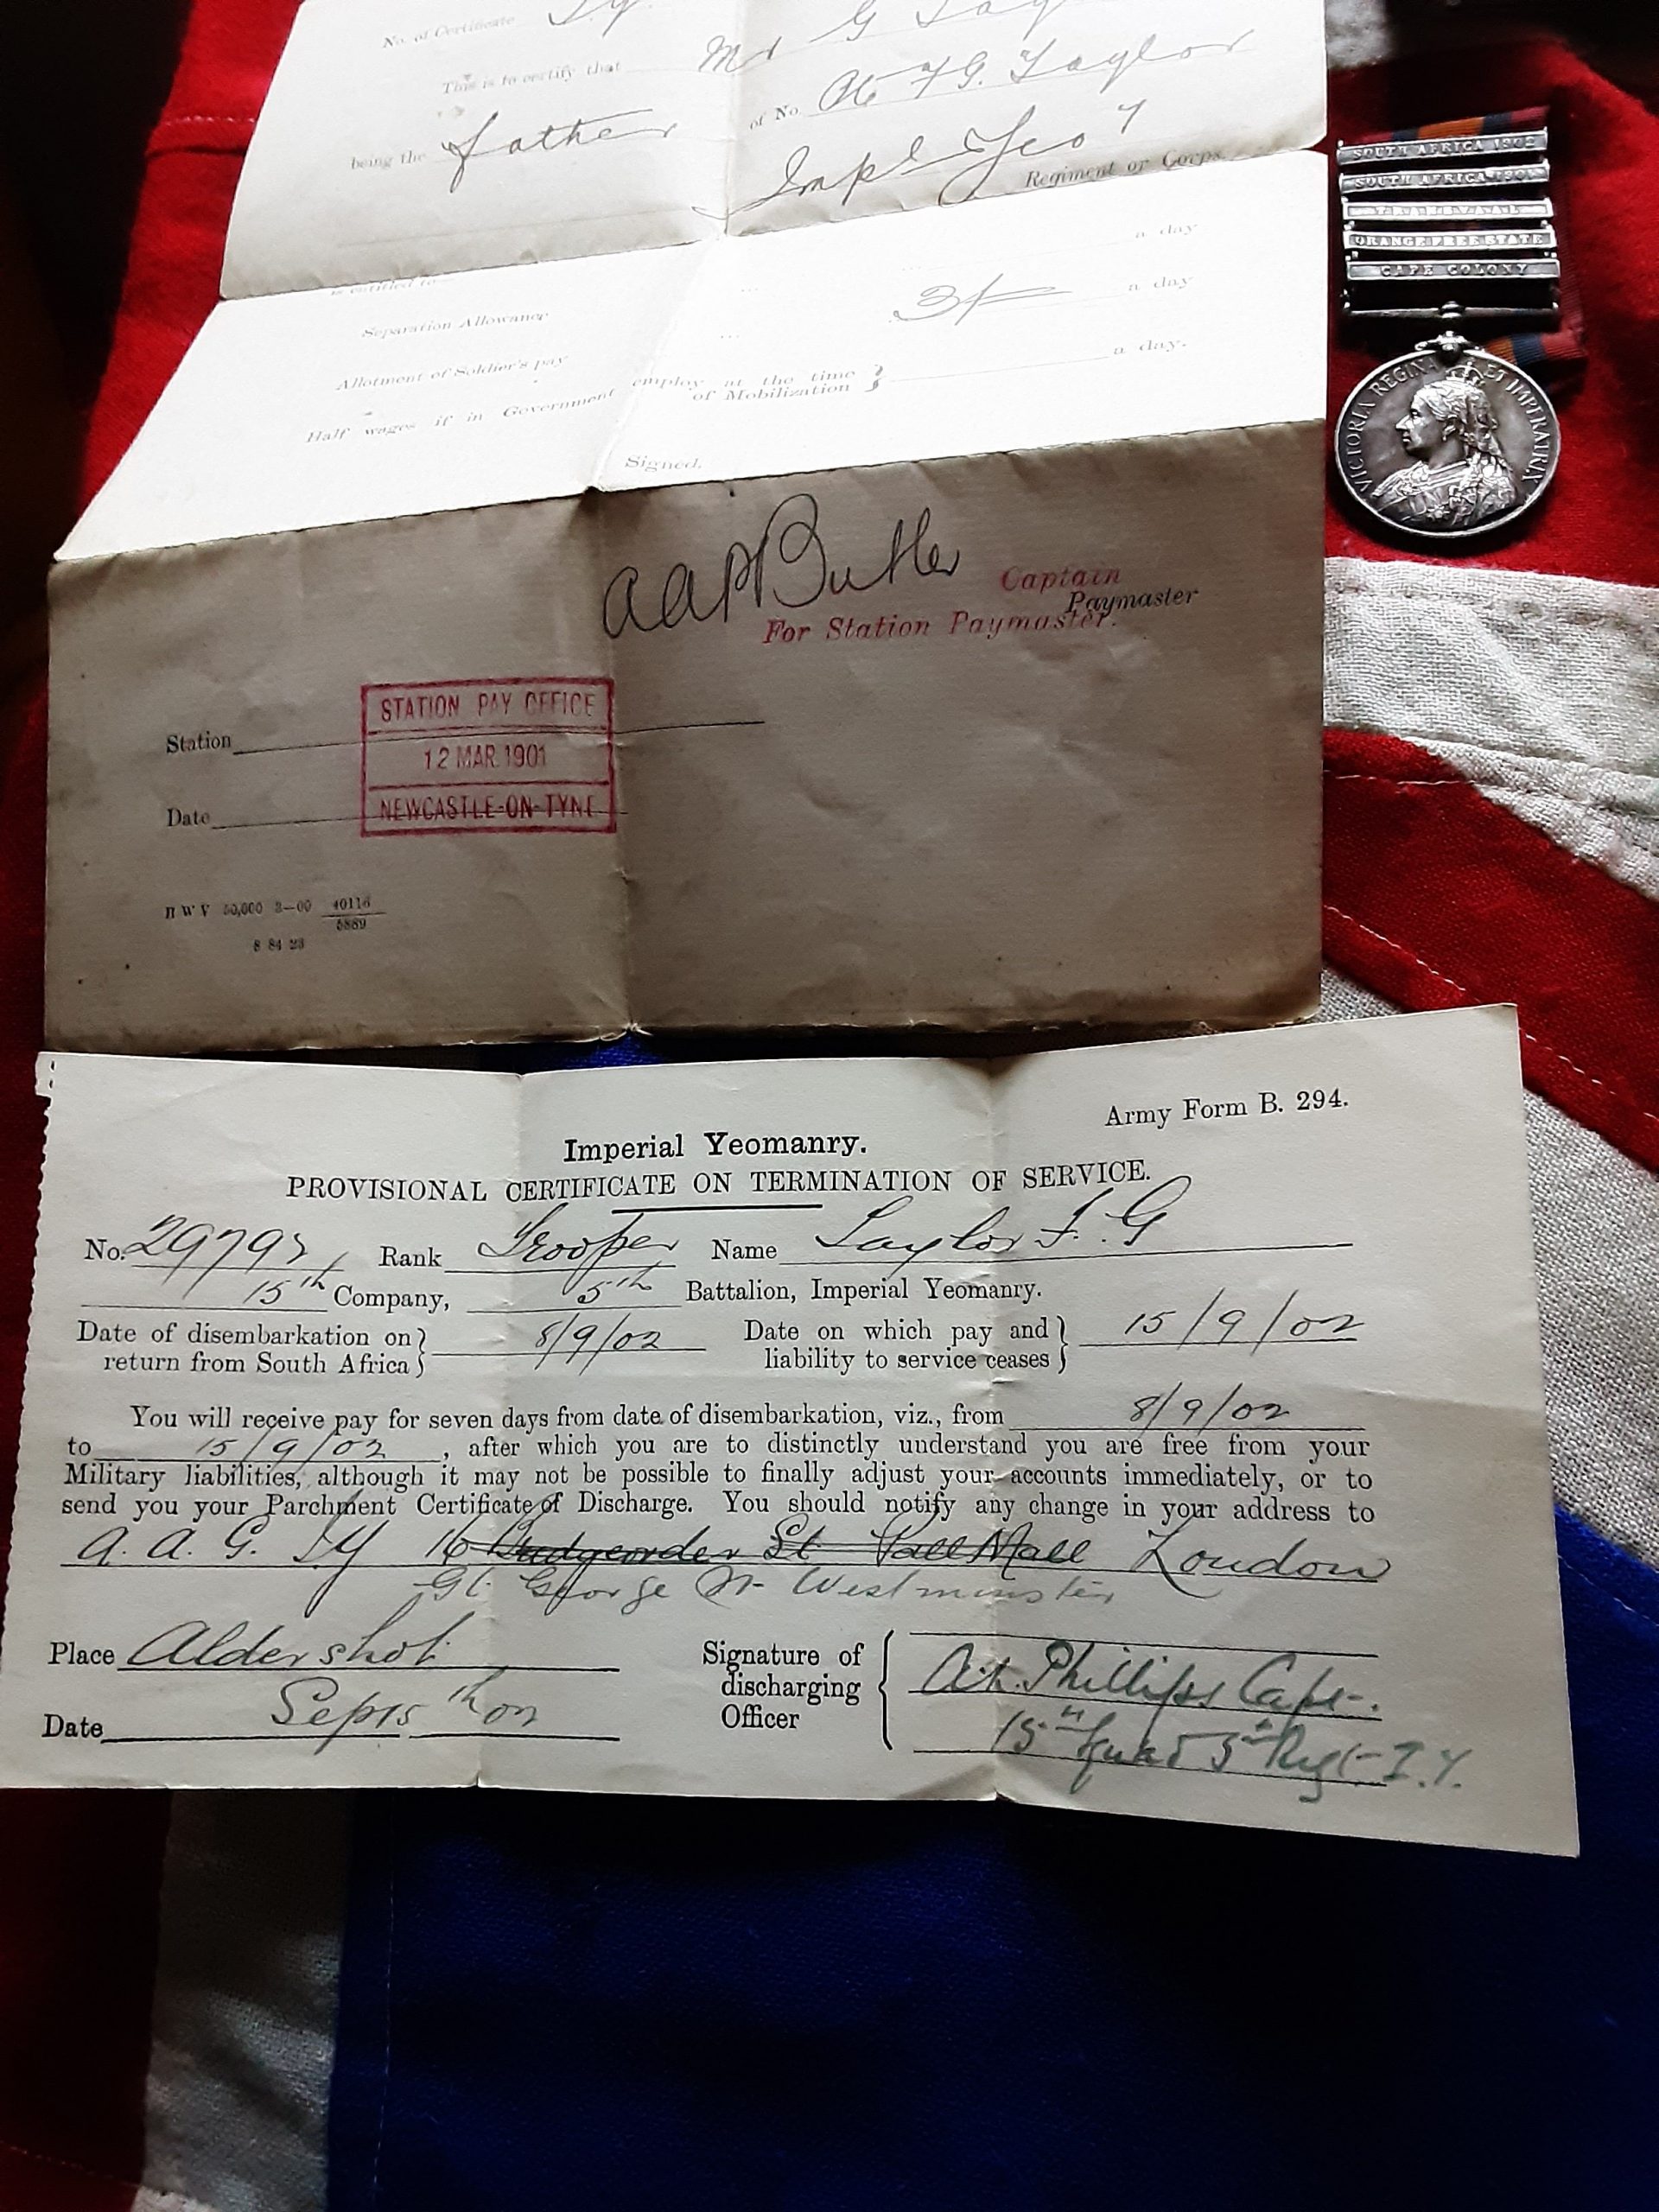 No. of Certificate
This is to certify that Mr G
being the father of No. F G. Taylor
Impl Yeoy
Regiment or Corps.
is entitled to
a day
Separation Allowance ... 3/= a day
Allotment of Soldier's pay ... a day.
Half wages if in Government employ at the time of Mobilization }
Signed,
Butler
Captain
Paymaster
For Station Paymaster.
STATION PAY OFFICE
Station
12 MAR. 1901
Date
NEWCASTLE-ON-TYNE
50,000 3—00 40116
5889
8 84 23
SOUTH AFRICA 1902
SOUTH AFRICA 1901
TRANSVAAL
ORANGE FREE STATE
CAPE COLONY
VICTORIA REGINA ET IMPERATRIX
Army Form B. 294.
Imperial Yeomanry.
PROVISIONAL CERTIFICATE ON TERMINATION OF SERVICE.
No. Rank Trooper Name Taylor F. G
15th Company, 5th Battalion, Imperial Yeomanry.
Date of disembarkation on return from South Africa } 8/9/02 Date on which pay and liability to service ceases } 15/9/02
You will receive pay for seven days from date of disembarkation, viz., from 8/9/02
to 15/9/02, after which you are to distinctly understand you are free from your
Military liabilities, although it may not be possible to finally adjust your accounts immediately, or to
send you your Parchment Certificate of Discharge. You should notify any change in your address to
A. A. G. IY 16 St Pall Mall London
Gt. George St Westminster
Place Aldershot
Date Sep 15th 02
Signature of discharging Officer { Phillips Capt.
15th Squad 5th Regt I.Y.